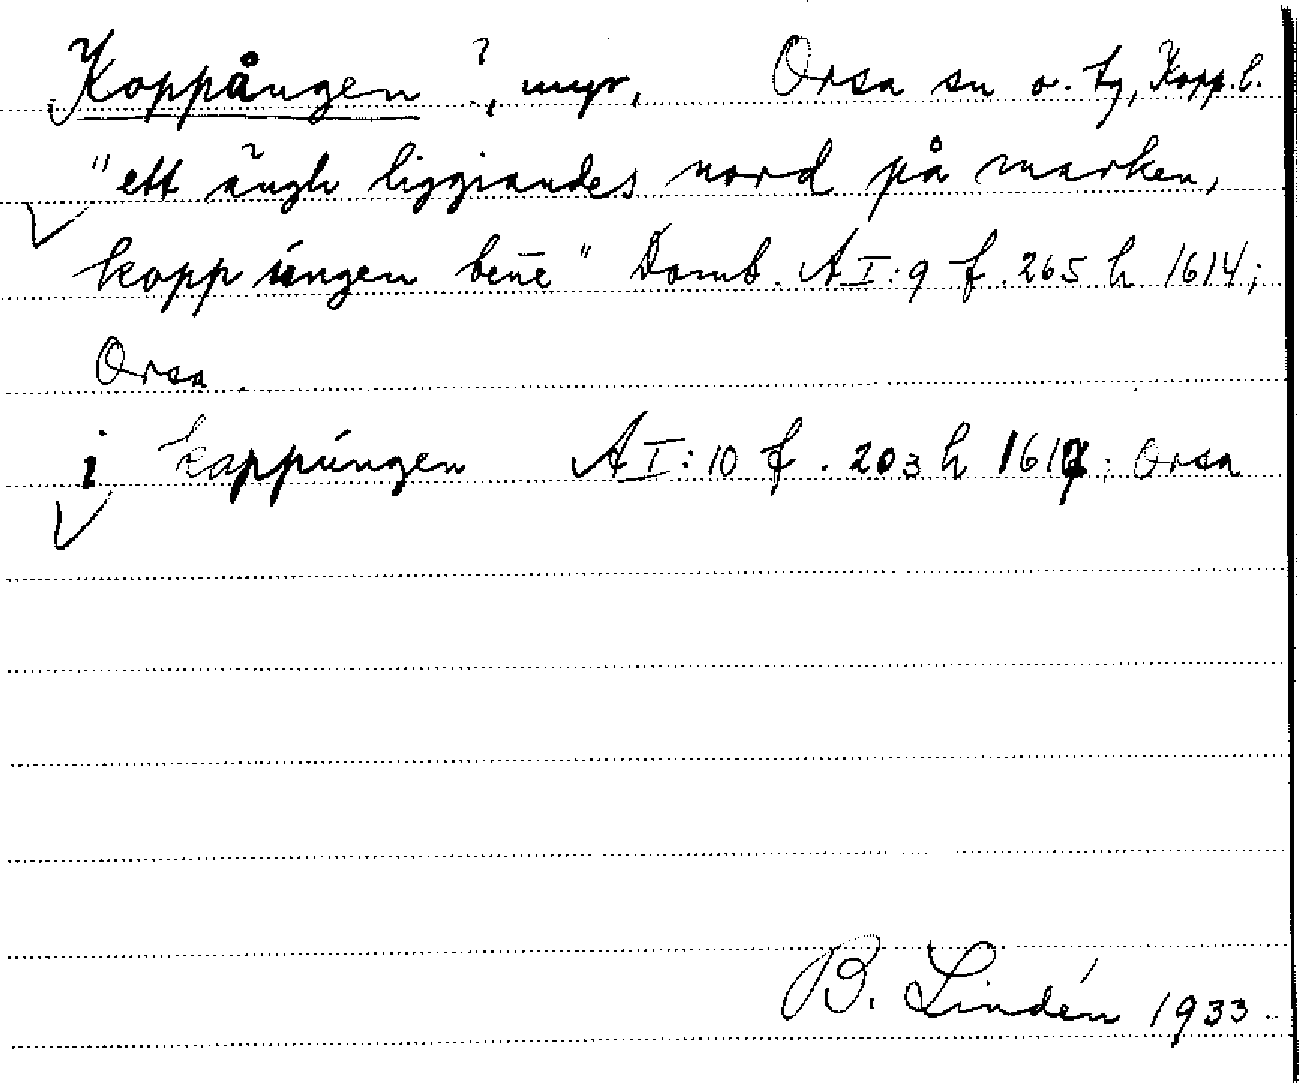 Koppången ?, myr, Orsa sn o. tg, Kopp. l.
"ett ängh liggiandes nord på marken,
kopp úngen bene̅" Domb. A I: 9 f. 265 h 1614;
Orsa.
i kappúngen A I: 10 f. 203 h 1617; Orsa
B. Lindén 1933.